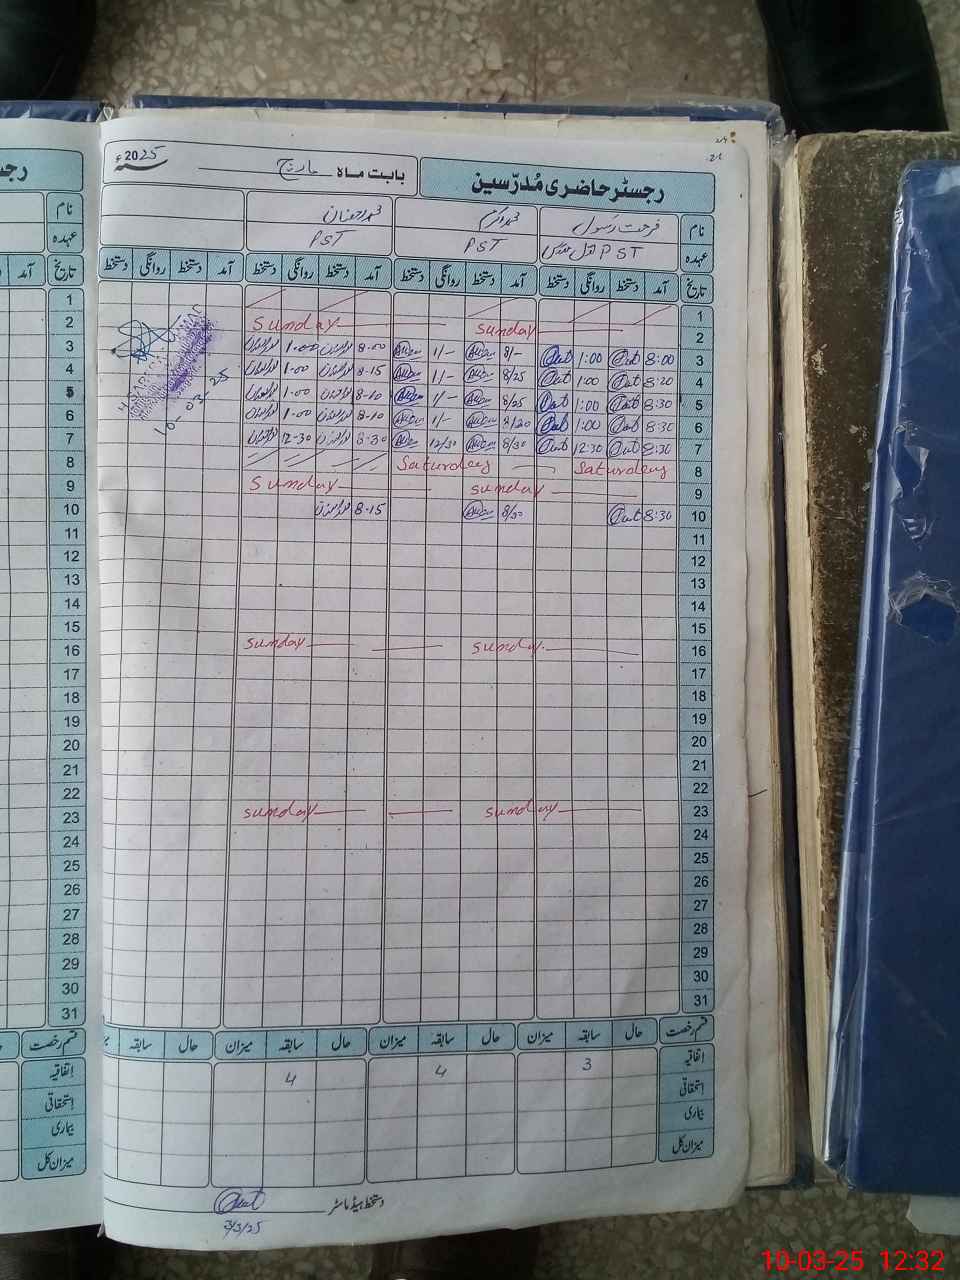 رجسٹر حاضری مُدرّسین بابت ماہ مارچ 2025ء
نام فرحت رسول
عہدہ PST PST PST
تاریخ آمد دستخط روانگی دستخط آمد دستخط روانگی دستخط آمد دستخط روانگی دستخط آمد دستخط روانگی دستخط
1
2 Sunday Sunday
3 8:00 1:00 8/- 1/- 8-00 1-00
4 8:20 1:00 8/25 1/- 8-15 1-00
5 8:30 1:00 8/25 1/- 8-10 1-00
6 8:30 1:00 8/20 1/- 8-10 1-00
7 8:30 12:30 8/30 12/30 8-30 12-30
8 Saturday Saturday
9 Sunday Sunday
10 8:30 8/30 8-15
10-03-25
11
12
13
14
15
16 Sunday Sunday
17
18
19
20
21
22
23 Sunday Sunday
24
25
26
27
28
29
30
31
قسم رخصت حال سابقہ میزان حال سابقہ میزان حال سابقہ میزان حال سابقہ
اتفاقیہ 3 4 4
استحقاقی
بیماری
میزان کل
دستخط ہیڈ ماسٹر
3/3/25
نام
عہدہ
تاریخ آمد
قسم رخصت
اتفاقیہ
استحقاقی
بیماری
میزان کل
10-03-25 12:32